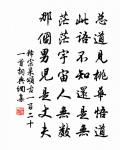 總道見桃華悟道
此語不知還是無
茫茫宇宙人無數
那個男兒是丈夫
釋宗杲頌古一百二十
一首詞典網集